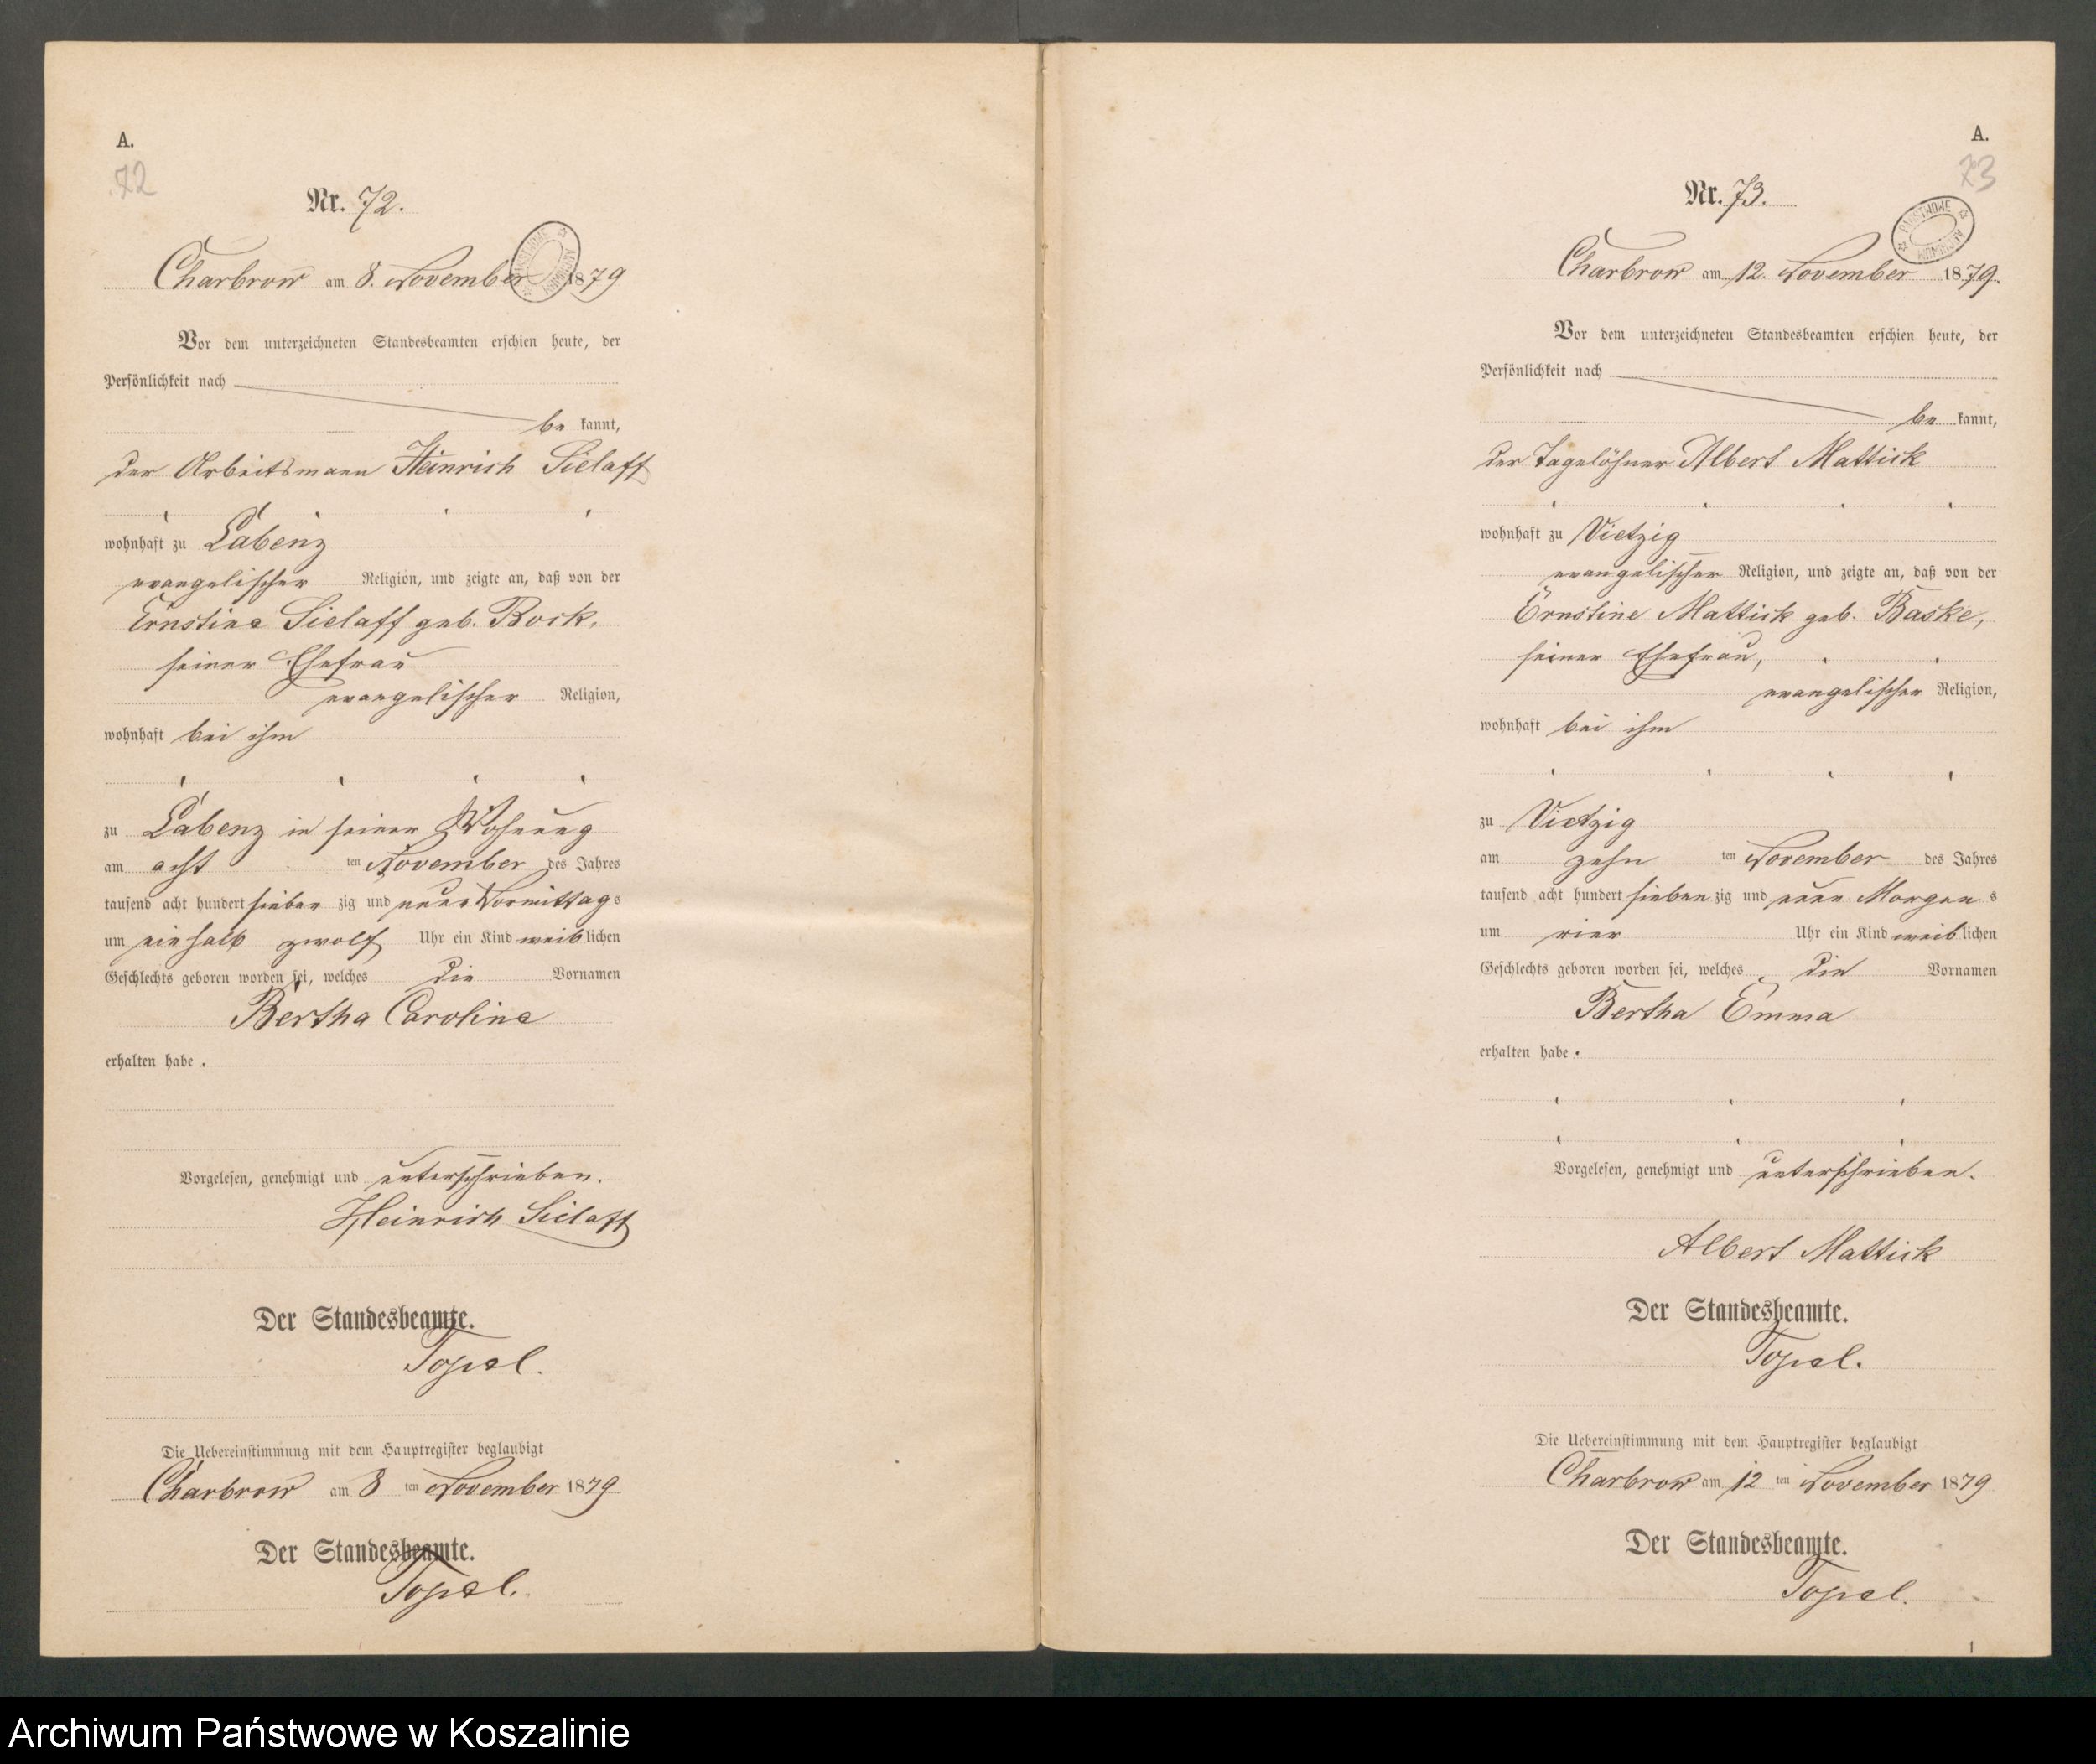 A.
72
Nr. 72.
Charbrow am 8. November 1879
Vor dem unterzeichneten Standesbeamten erschien heute, der
Persönlichkeit nach
be kannt,
der Arbeitsmann Heinrich Sielaff
wohnhaft zu Labenz
evangelischer Religion, und zeigte an, daß von der
Ernstine Sielaff geb. Bock,
seiner Ehefrau
evangelischer Religion,
wohnhaft bei ihm
zu Labenz in seiner Wohnung
am acht ten November des Jahres
tausend acht hundert sieben zig und neun Vormittags
um einhalb zwolf Uhr ein Kind weiblichen
Geschlechts geboren worden sei, welches die Vornamen
Bertha Caroline
erhalten habe.
Vorgelesen, genehmigt und unterschrieben.
Heinrich Sielaff
Der Standesbeamte.
Topel.
Die Uebereinstimmung mit dem Hauptregister beglaubigt
Charbrow am 8 ten November 1879
Der Standesbeamte.
Topel.
A.
73
Nr. 73.
PAŃSTWOWE ARCHIWUM
Charbrow am 12. November 1879.
Vor dem unterzeichneten Standesbeamten erschien heute, der
Persönlichkeit nach
be kannt,
der Tagelöhner Albert Mattick
wohnhaft zu Vietzig
evangelischer Religion, und zeigte an, daß von der
Ernstine Mattick geb. Baske,
seiner Ehefrau,
evangelischer Religion,
wohnhaft bei ihm
zu Vietzig
am zehn ten November des Jahres
tausend acht hundert sieben zig und neun Morgens
um vier Uhr ein Kind weiblichen
Geschlechts geboren worden sei, welches die Vornamen
Bertha Emma
erhalten habe.
Vorgelesen, genehmigt und unterschrieben.
Albert Mattick
Der Standesbeamte.
Topel.
Die Uebereinstimmung mit dem Hauptregister beglaubigt
Charbrow am 12 ten November 1879
Der Standesbeamte.
Topel.
1
Archiwum Państwowe w Koszalinie